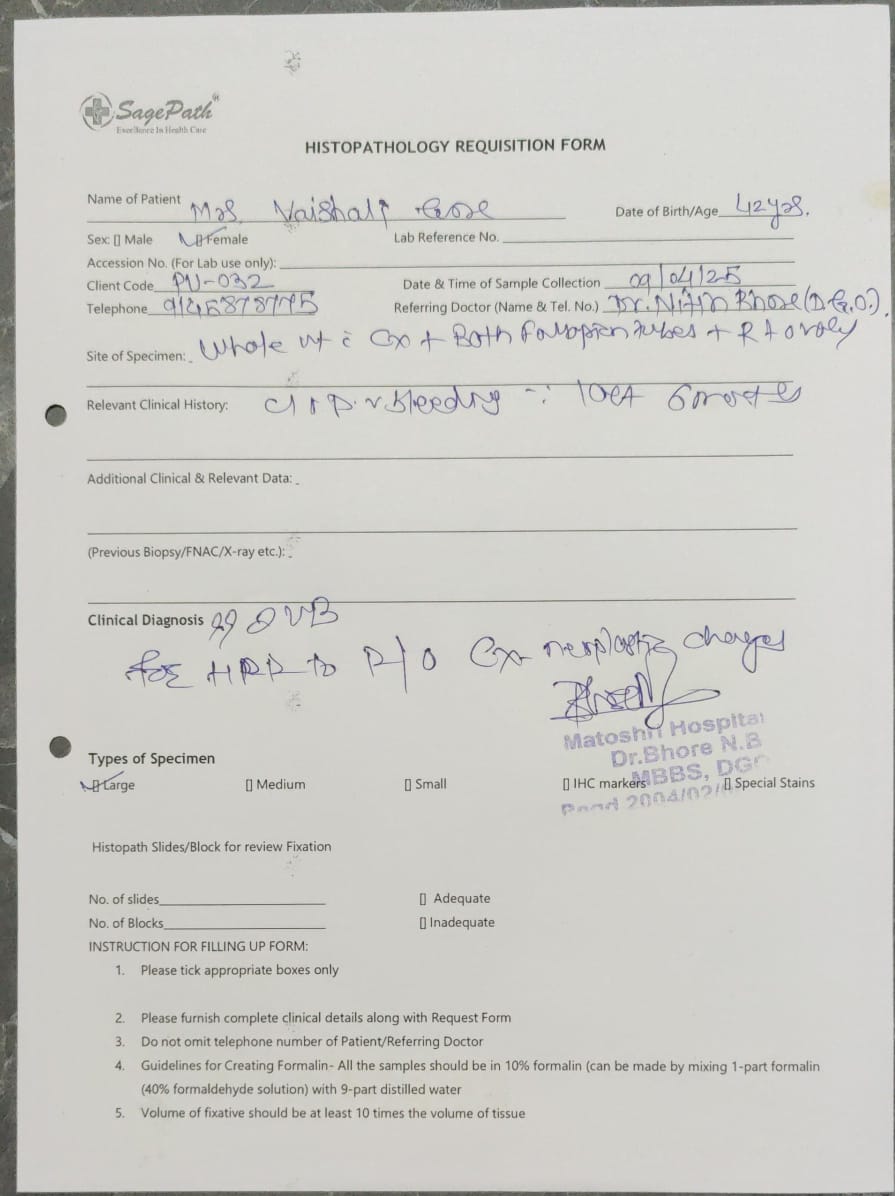 SagePath
Excellence In Health Care
HISTOPATHOLOGY REQUISITION FORM
Name of Patient Mrs. Vaishali Date of Birth/Age 42yrs.
Sex: [] Male [] Female Lab Reference No.
Accession No. (For Lab use only):
Client Code PU-032 Date & Time of Sample Collection 09/04/25
Telephone Referring Doctor (Name & Tel. No.) Dr. Nitin Bhore (D.G.O.).
Site of Specimen: Whole ut c Cx + Both Fallopian tubes + Rt ovary
Relevant Clinical History: c/o P.v bleeding last 6 months
Additional Clinical & Relevant Data:
(Previous Biopsy/FNAC/X-ray etc.):
Clinical Diagnosis DUB
for HPR to R/O Cx neoplastic changes
Matoshri Hospital
Dr.Bhore N.B
MBBS, DGO
2004/02/
Types of Specimen
[] Large [] Medium [] Small [] IHC markers [] Special Stains
Histopath Slides/Block for review Fixation
No. of slides [] Adequate
No. of Blocks [] Inadequate
INSTRUCTION FOR FILLING UP FORM:
1. Please tick appropriate boxes only
2. Please furnish complete clinical details along with Request Form
3. Do not omit telephone number of Patient/Referring Doctor
4. Guidelines for Creating Formalin- All the samples should be in 10% formalin (can be made by mixing 1-part formalin
(40% formaldehyde solution) with 9-part distilled water
5. Volume of fixative should be at least 10 times the volume of tissue